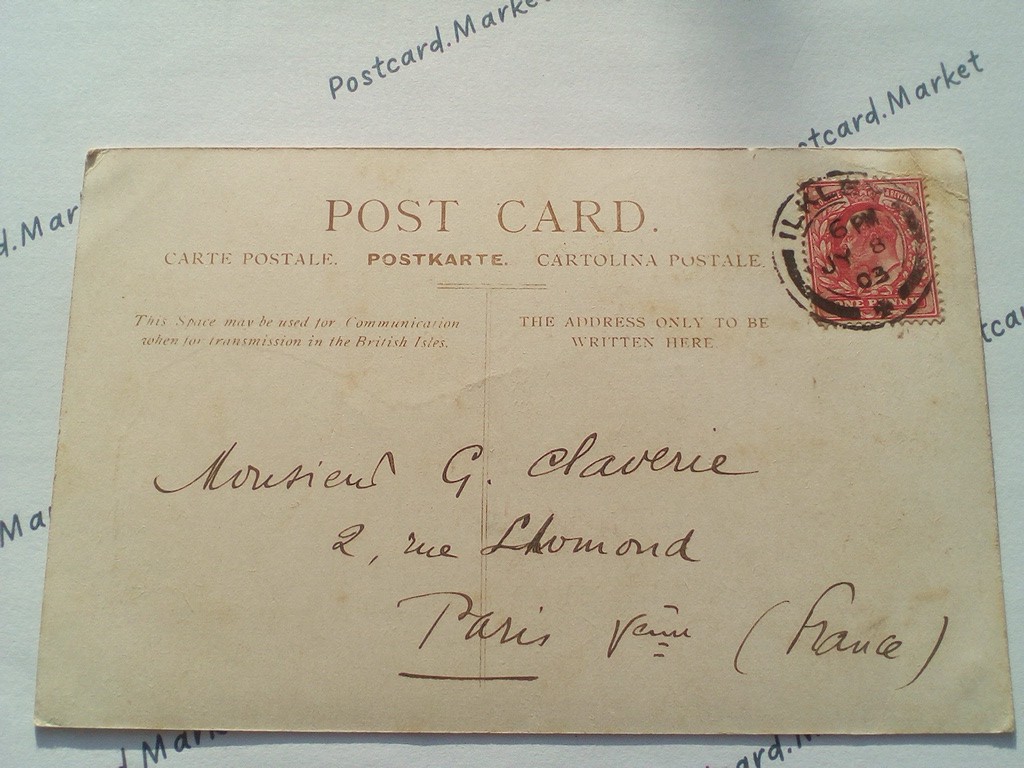 Postcard.Market
POST CARD.
CARTE POSTALE. POSTKARTE. CARTOLINA POSTALE.
This Space may be used for Communication
when for transmission in the British Isles.
THE ADDRESS ONLY TO BE
WRITTEN HERE.
6 PM
JY 8
03
ONE PENNY
Monsieur G. Claverie
2, rue Lhomond
Paris Vème (France)